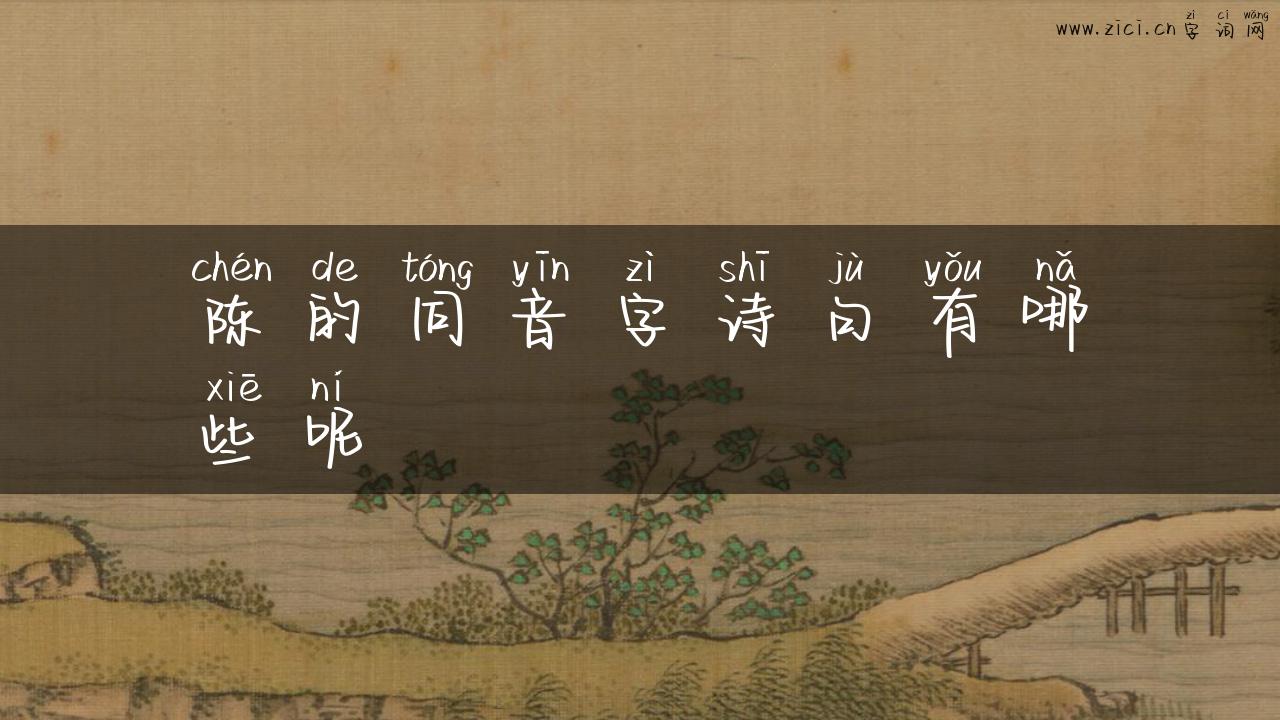 zì cí wǎng
www.zici.cn 字词网
chén de tóng yīn zì shī jù yǒu nǎ
陈的同音字诗句有哪
xiē ní
些呢